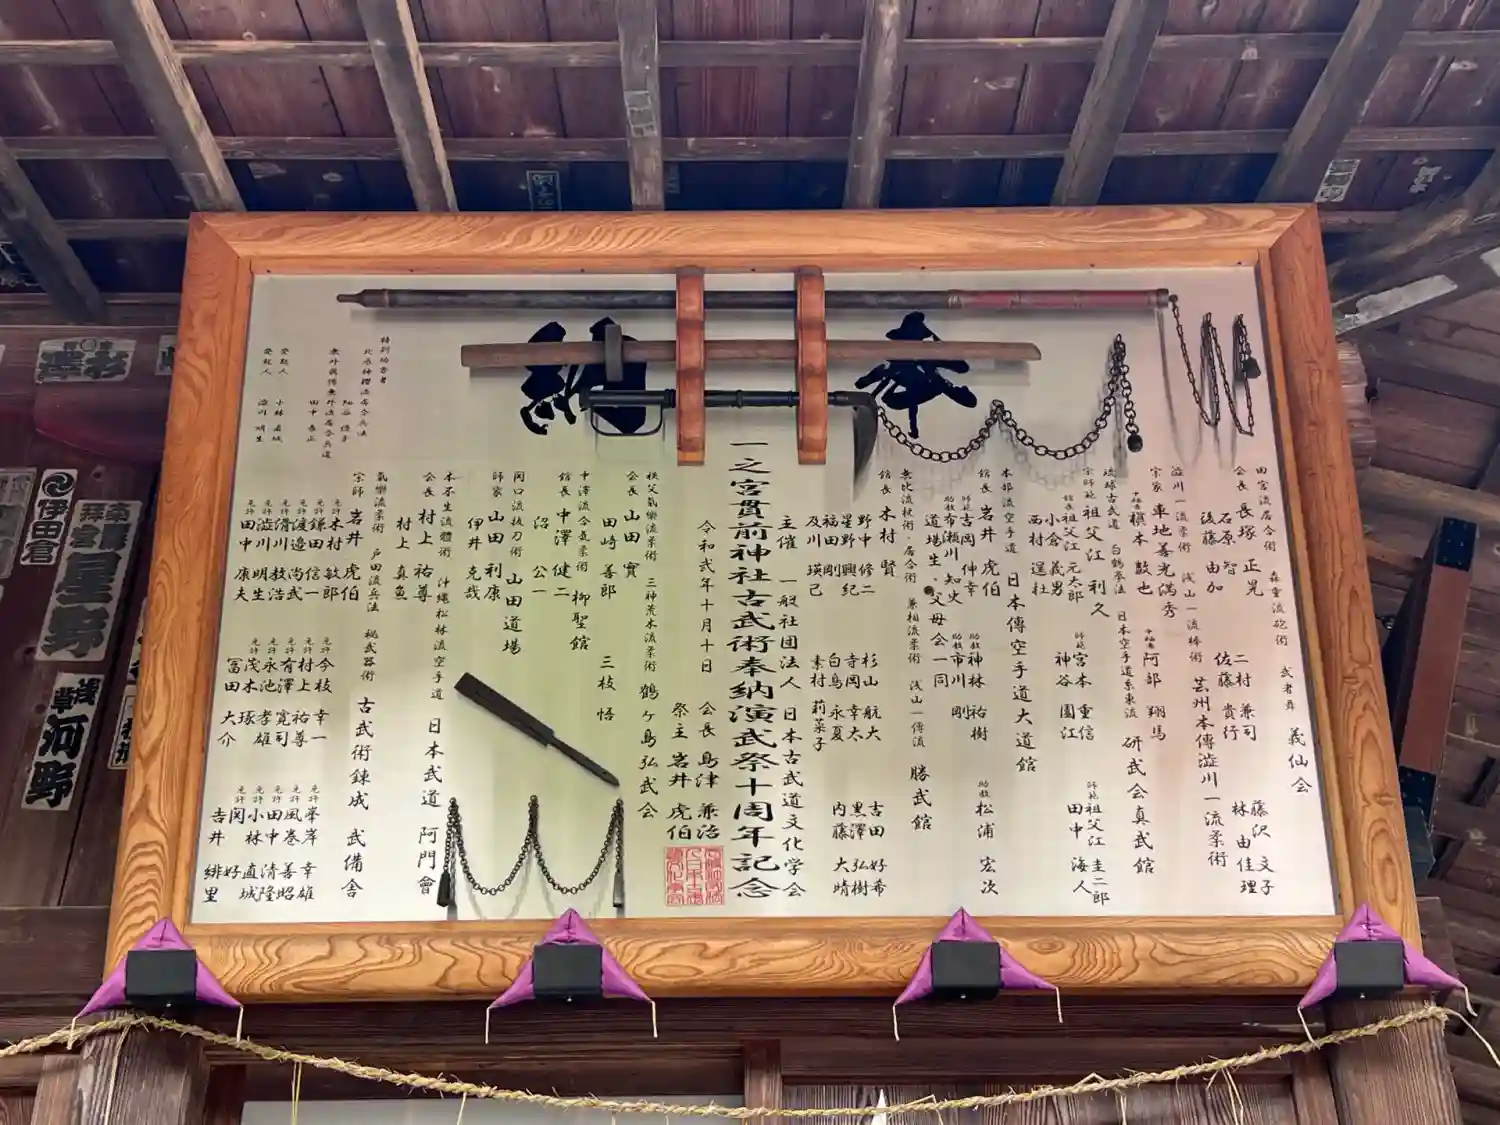 奉納
田宮流居合術 森重流砲術 武者舞 義仙会
会長 長塚 正晃
石原 智
後藤 由加
二村 兼司
佐藤 貴行
藤沢 文子
林 由佳理
澁川一流柔術 浅山一流棒術 芸州本傳澁川一流柔術
宗家 車地善光満秀
槇本 敼也
阿部 翔馬
琉球古武道 白鶴拳法 日本空手道系東流 研武会真武館
宗師範 祖父江 利久
館長 祖父江元太郎
小倉 義男
西村 遅杜
師範 宮本 重信
神谷 園江
師範 祖父江 圭二郎
田中 海人
本部流空手道 日本傳空手道大道館
館長 岩井 虎伯
師範 吉岡 伸幸
助教 布瀬川 知史
道場生、父母会一同
助教 神林 祐樹
助教 市川 剛
助教 松浦 宏次
無比流杖術・居合術 兼相流柔術 浅山一傳流 勝武館
館長 木村 賢
野中 修二
星野 興紀
福田 剛
及川 瑛己
杉山 航大
寺岡 幸太
白鳥 永夏
素村 莉菜子
古田 好希
黒澤 弘樹
内藤 大晴
主催 一般社団法人 日本古武道文化学会
一之宮貫前神社古武術奉納演武祭十周年記念
令和弐年十月十日 会長 島津 兼治
祭主 岩井 虎伯
秩父氣樂流柔術 三神荒木流柔術 鶴ヶ島弘武会
会長 山田 實
田崎 善郎
三枝 悟
中澤流合氣柔術 柳聖館
館長 中澤 健二
沼 公一
関口流抜刀術 山田道場
師家 山田 利康
伊井 克哉
本不生流體術 沖縄松林流空手道 日本武道 阿門會
会長 村上 祐尊
村上 真魚
氣樂流柔術 戸田流兵法 秘武器術 古武術錬成 武備舎
宗師 岩井 虎伯
免許 木村 敏郎
免許 鎌田 信一
免許 渡邉 尚武
免許 滑川 教浩
免許 澁川 明生
免許 田中 康夫
免許 今枝 幸一
免許 村上 祐尊
免許 有澤 寛司
免許 永池 孝雄
免許 茂木 琢
冨田 大介
免許 峯岸 幸雄
免許 風巻 善昭
免許 田中 清隆
免許 小林 直城
免許 関 好
吉井 緋里
特別協力者
北辰神櫻流居合兵法
無外真傳無外流居合兵道
田中 泰正
発起人 小林 直城
発起人 澁川 明生
伊田倉
奉拝
星野
浅草
河野